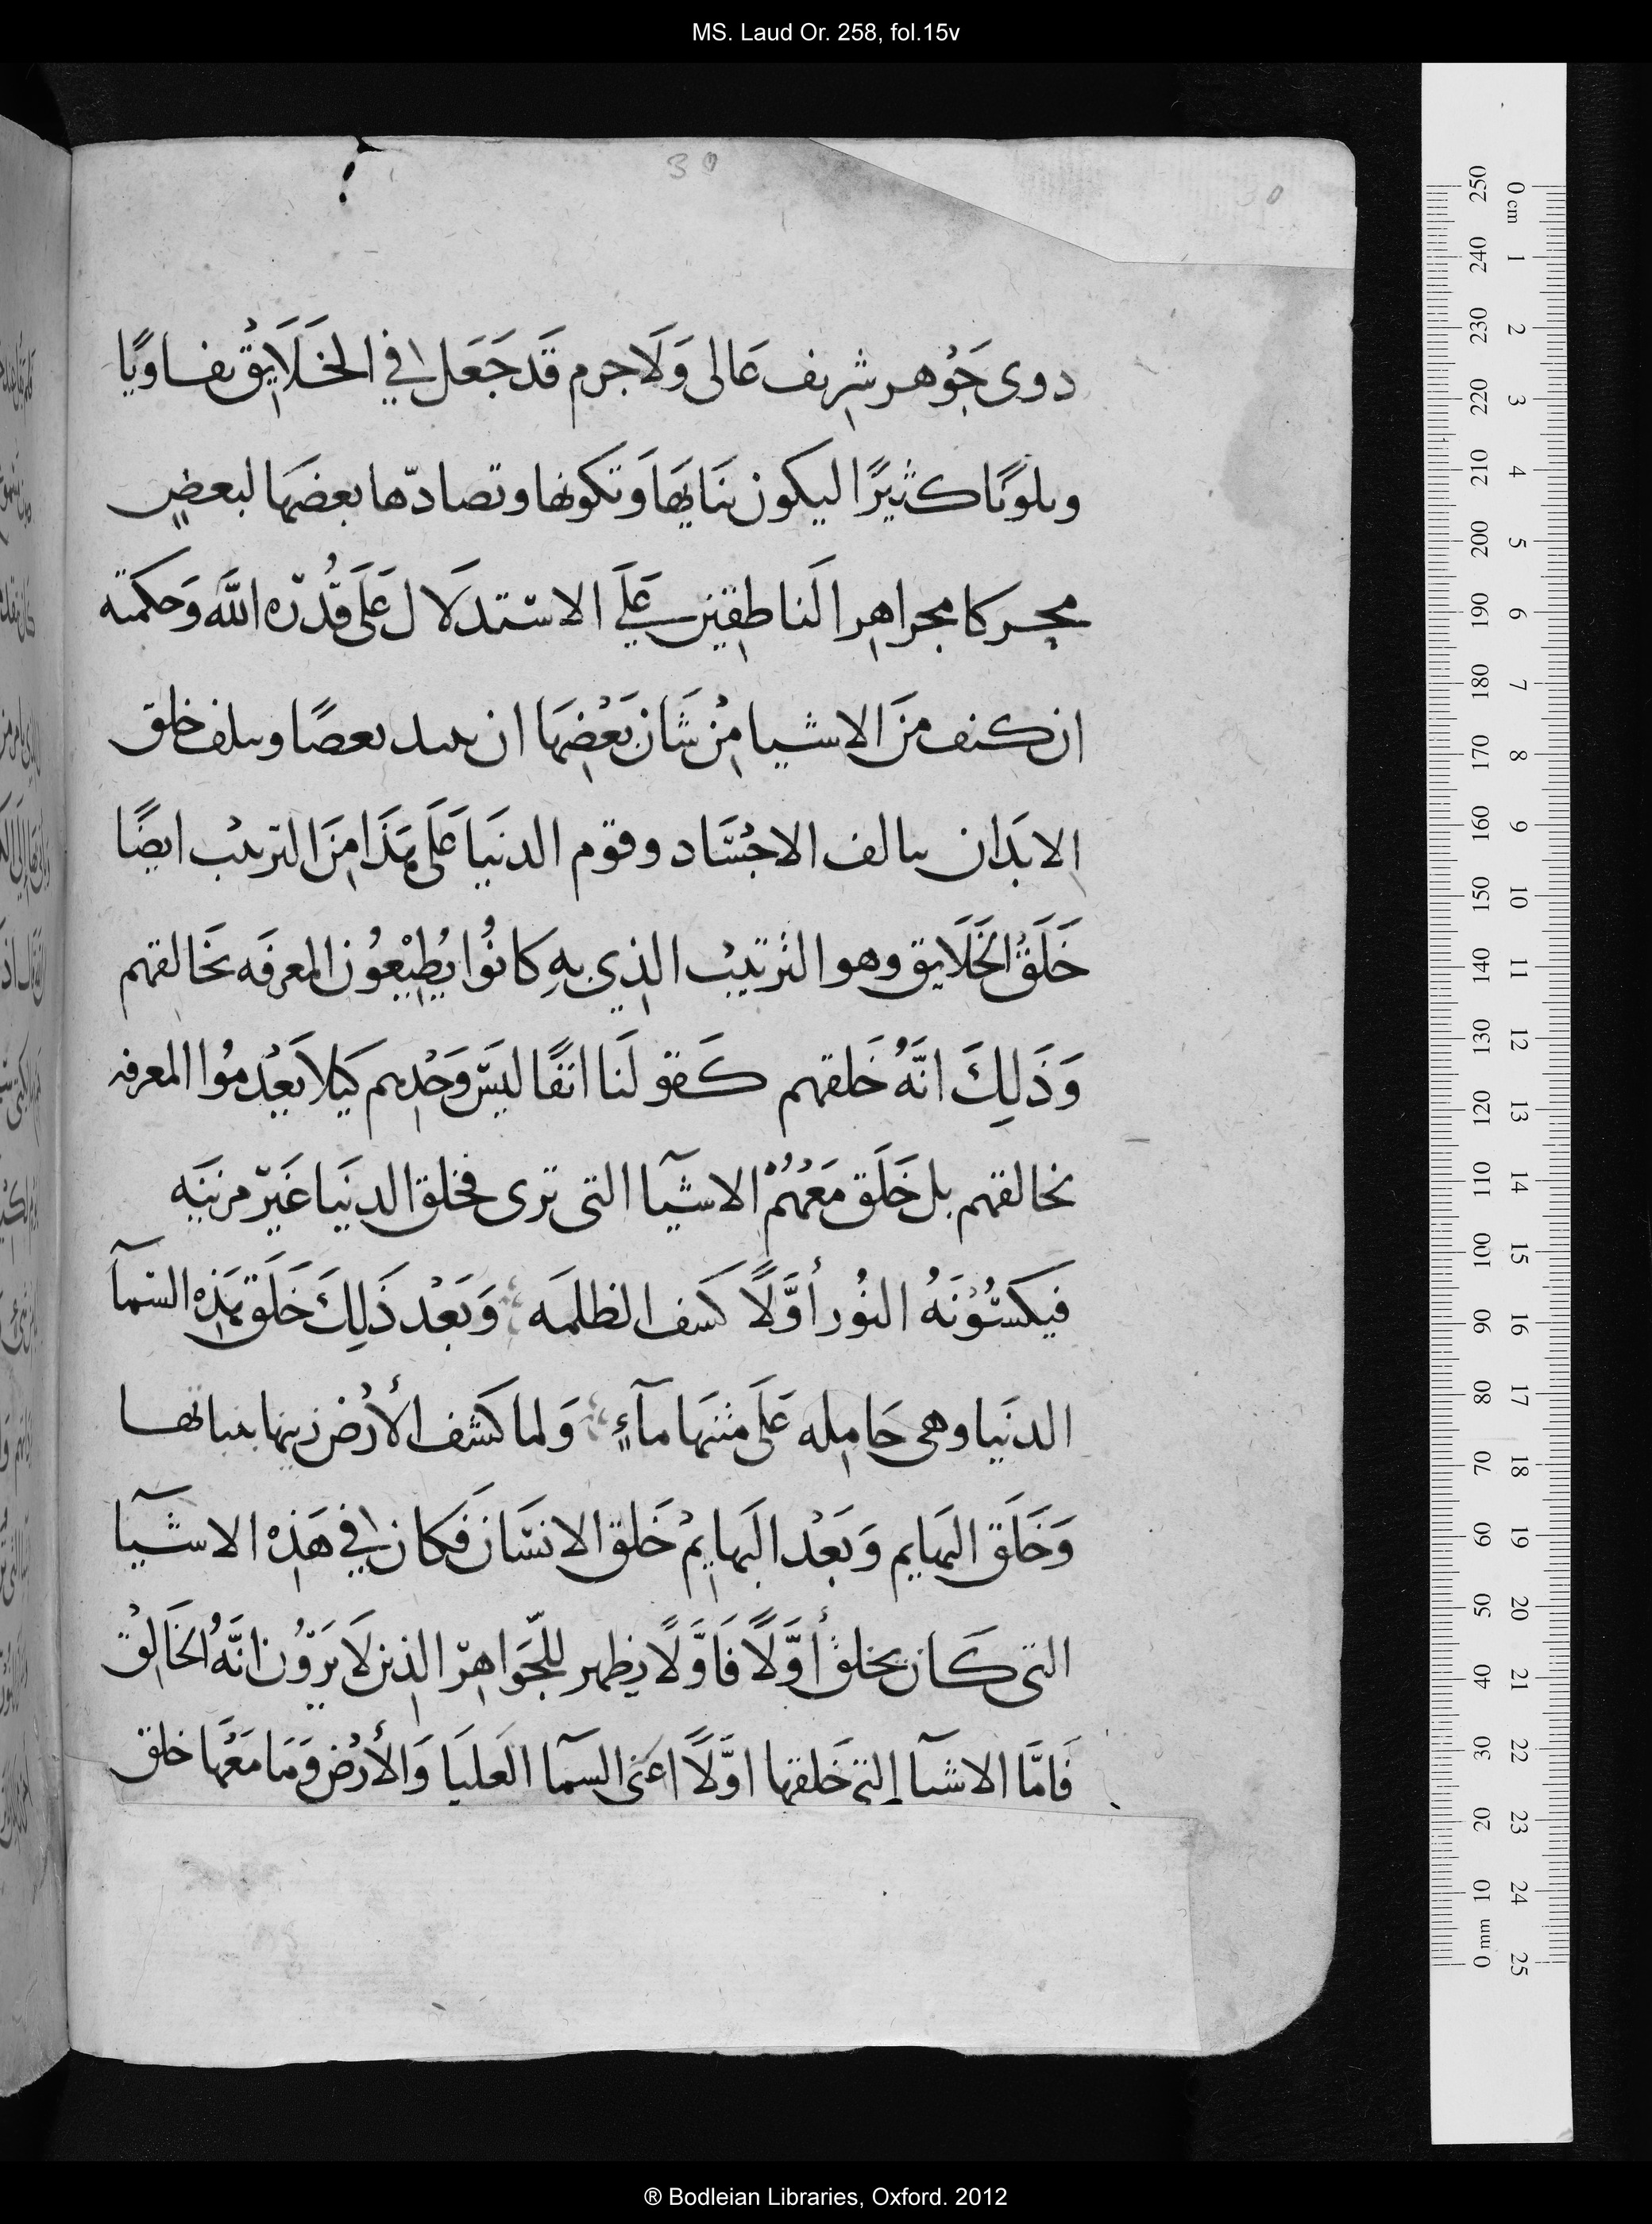 MS. Laud Or. 258, fol.15v
30
30
دوى جَوْهر شرِيف عَالى وَلَا جرم قَد جَعَل في الخَلَايِقْ تفاوتًا
وتلونًا كثيرًا ليكون بنايَها وَتكونها وتصادّها بعضَها لبعضٍ
محركا مجراهِر الَناطِقين علَي الاستدلَال عَلَى قُدّره اللَّه وَحكمته
ان كنف مَنَ الاشيا مِنْ شَان بَعْضِهَا ان بعضًا خلق
الابدَان الاجْسَّاد وقوم الدنيَا عَلَى هَذَا مِنَ الترتيْب ايضًا
خَلَقُ الخَلَايق وهو الترتيْب الذِي بهِ كانُوا يُطِيْعُون المعرفَه بخَالقهم
وَذَلِكَ انَّهُ خَلقهم كَقولَنا انفًا ليسَّ وَحْدِهم كَيلا يَعْدِموُا المعرفه
بخالقهم بل خَلَق مَعَهُمْ الاشيآا التى ترى فخلق الدنيَا غَيرّ مزينَه
فيكسُّوْنَهُ النُور أَوَّلًا كَسَف الظلمَه وَبَعْد ذَلِكَ خَلَق هَذِهْ السّمآ
الدنيَا وهى حَامِله عَلَى متنهَا مآءٍ وَلما كَشَف الأَرْض زينها بنباتها
وَخَلَق البهايم وَبَعْد البَهايِمْ خَلق الانسَّان فَكان في هَذِهْ الاشيآا
التى كَان يخلقُ أَوَّلًا فَاوَّلًا يظهر للجّوَاهِرّ الذِين لَا يَرَوّْن انَّهُ الخَالِقْ
فَامَّا الاشيآ التى خَلقها اوَّلًا اعَنى السمآا العَليَا وَالأَرْض وَمَا مَعَهَا خلق
0 cm 1 2 3 4 5 6 7 8 9 10 11 12 13 14 15 16 17 18 19 20 21 22 23 24 25
250 240 230 220 210 200 190 180 170 160 150 140 130 120 110 100 90 80 70 60 50 40 30 20 10 0 mm
® Bodleian Libraries, Oxford. 2012